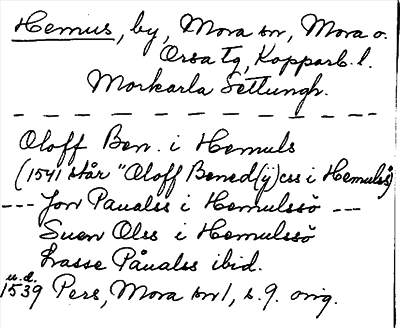 Hemus, by, Mora sn, Mora o.
Orsa tg, Kopparb. l.
Morkarla Settungh.
Oloff Ben. i Hemuls
(1541 står "Oloff Bened(ij)css i Hemulså)
--- Jon Paualss i Hemulssö ---
Suen Olss i Hemulssö
Lasse Påualss ibid.
u.d.
1539 Pers, Mora sn 1, s. 9. orig.